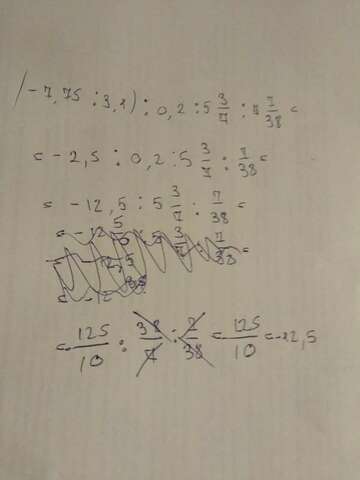 (-7,75 : 3,1) : 0,2 : 5 3/7 : 7/38 =
= -2,5 : 0,2 : 5 3/7 : 7/38 =
= -12,5 : 5 3/7 : 7/38 =
= -125/10 : 38/7 : 7/38 = -125/10 = -12,5